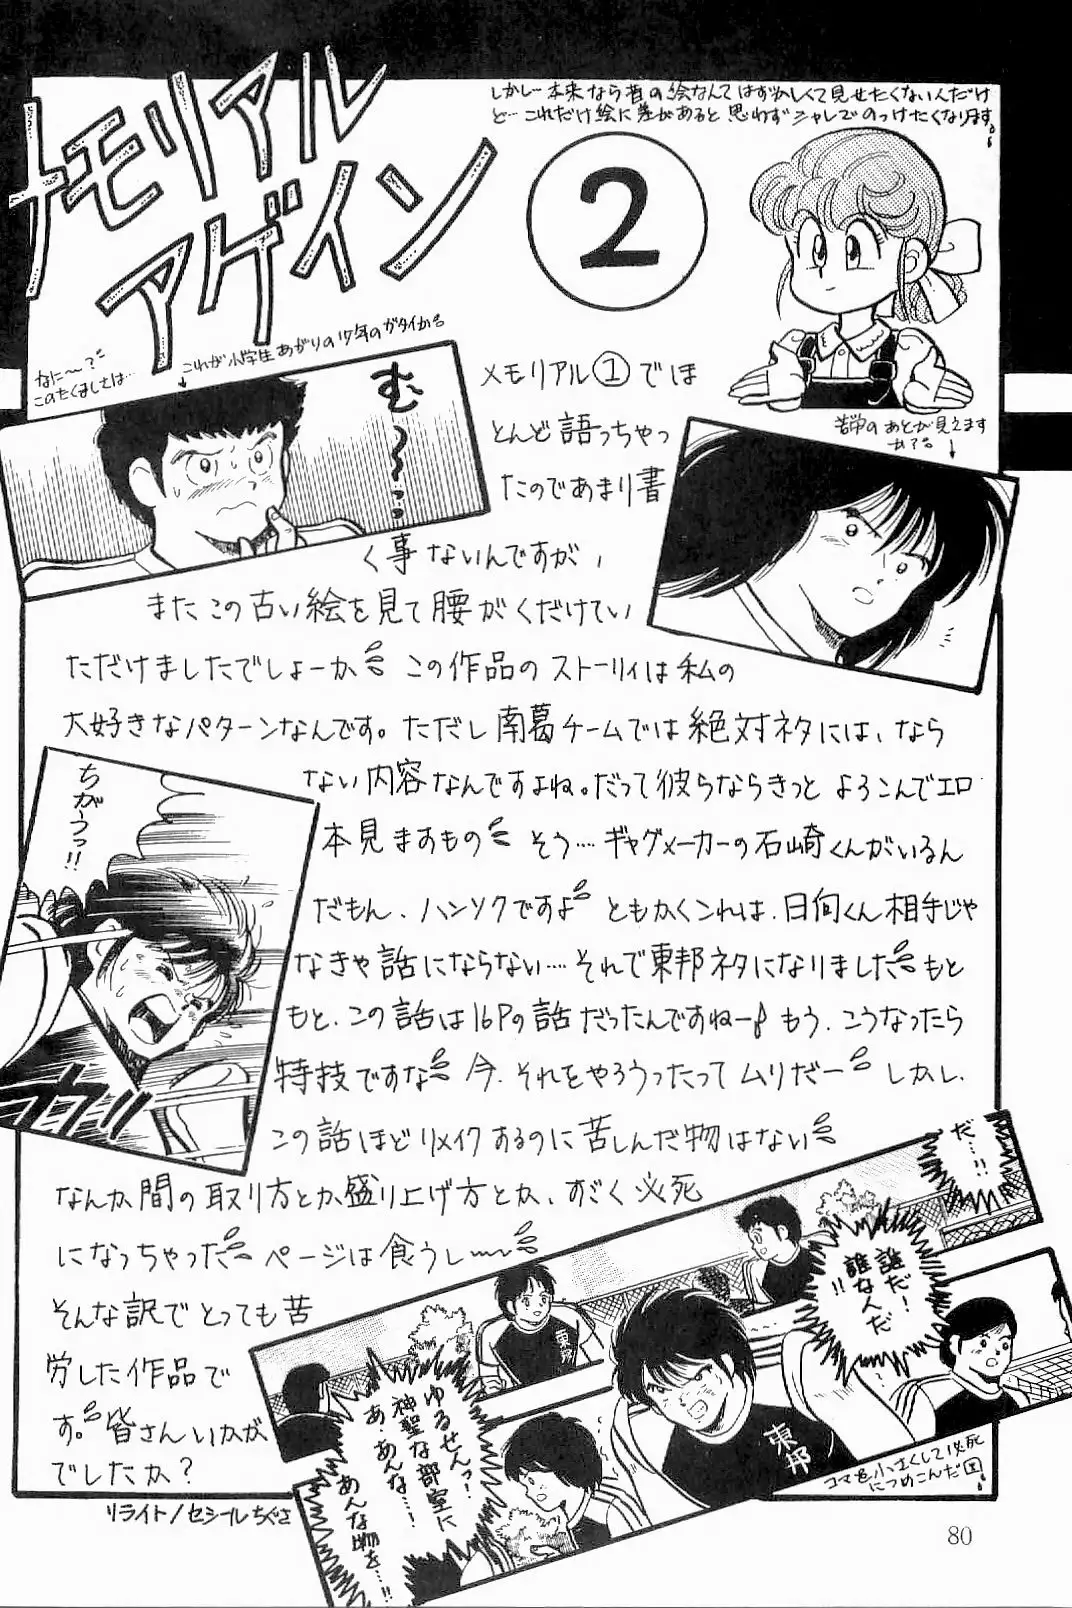 メモリアル
アゲイン
2
しかし…本来なら昔の絵なんてはずかしくて見せたくないんだけ
ど…これだけ絵に差があると思わずシャレでのっけたくなります。
なに〜?
このたくましさは…
これが小学生あがりの17年のガタイか。
む〜〜…っ
苦労のあとが見えます
か?
メモリアル①でほ
とんど語っちゃっ
たのであまり書
く事ないんですが、
またこの古い絵を見て腰がくだけてい
ただけましたでしょーか この作品のストーリィは私の
大好きなパターンなんです。ただし南葛チームでは絶対ネタには、なら
ない内容なんですよね。だって彼らならきっとよろこんでエロ
本見ますもの そう…ギャグメーカーの石崎くんがいるん
だもん、ハンソクですよ ともかくこれは、日向くん相手じゃ
なきゃ話にならない…それで東邦ネタになりました もと
もと、この話は16Pの話だったんですねー もう、こうなったら
特技ですな 今、それをやろうったってムリだー しかし、
この話ほどリメイクするのに苦しんだ物はない
なんか間の取り方とか盛り上げ方とか、すごく必死
になっちゃった ページは食うし〜
そんな訳でとっても苦
労した作品で
す。皆さんいかが
でしたか?
リライト/セシールちぐさ
ちがうっ!!
だ…!!
誰だ!
誰なんだ!!
東邦
ゆるせんっ…!
神聖な部室に
あ、あんな…!
あんな物を…!!
東邦
コマを小さくして必死
につめこんだ図
80